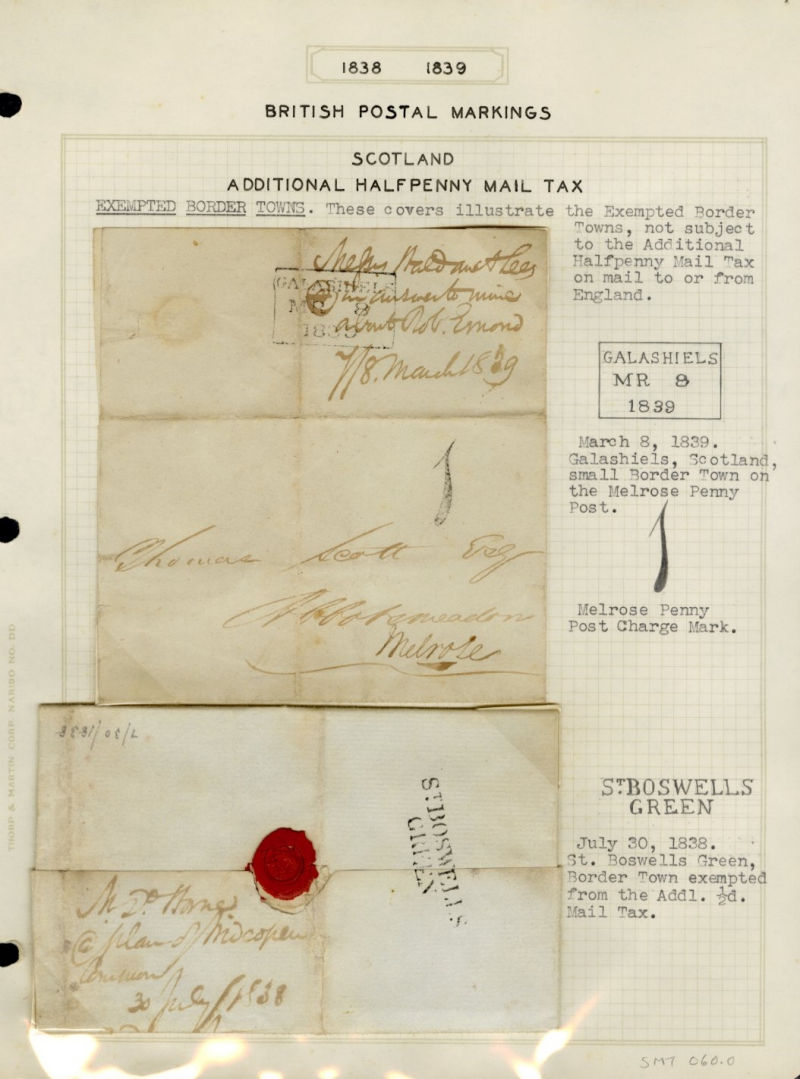 1838 1839
BRITISH POSTAL MARKINGS
SCOTLAND
ADDITIONAL HALFPENNY MAIL TAX
EXEMPTED BORDER TOWNS. These covers illustrate the Exempted Border
Towns, not subject
to the Additional
Halfpenny Mail Tax
on mail to or from
England.
Messrs Haldane & Lees
in answer to mine
about Rob. Emond
7/8. March 1839
GALASHIELS
MR 8
1839
GALASHIELS
MR 8
1839
March 8, 1839.
Galashiels, Scotland,
small Border Town on
the Melrose Penny
Post.
1
Thomas Scott Esq
Melrose
1
Melrose Penny
Post Charge Mark.
7/30/1838
ST BOSWELLS
GREEN
plan of
Common
30 July 1838
ST BOSWELLS
GREEN
July 30, 1838.
St. Boswells Green,
Border Town exempted
from the Addl. ½d.
Mail Tax.
THORP & MARTIN CORP. NARIBO NO. DD
SMT 060.0